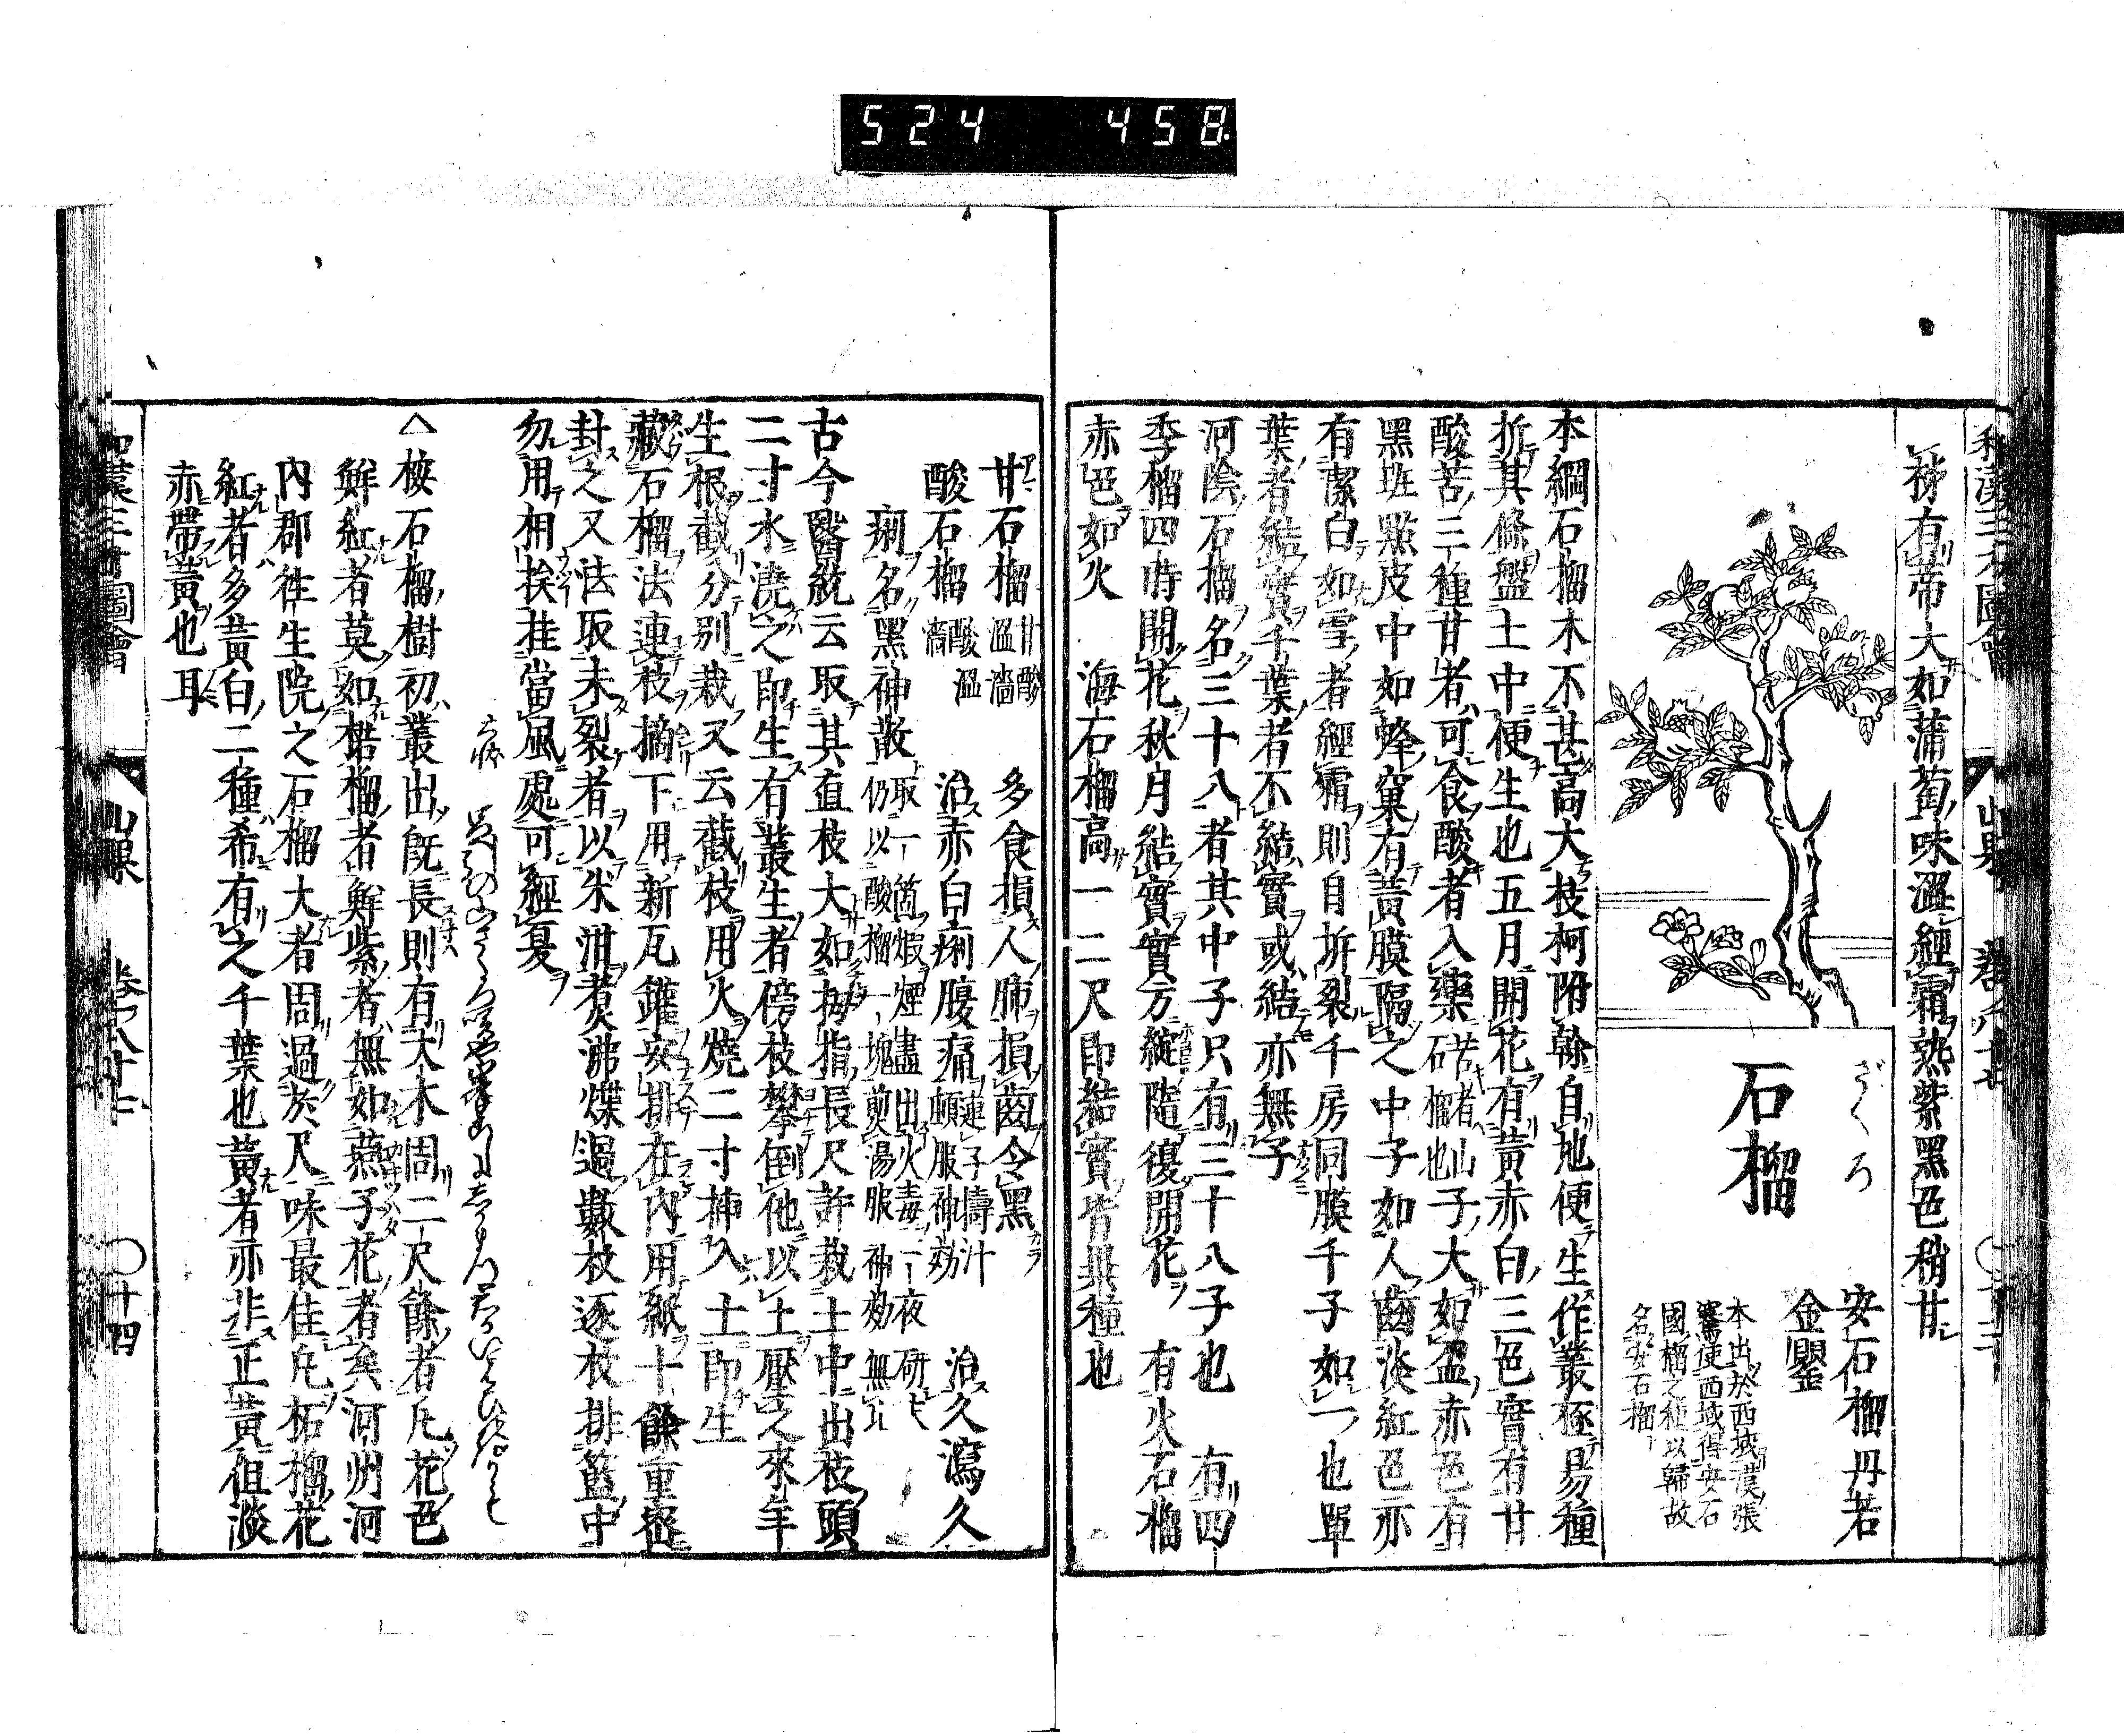 524 458
秭有蒂大如蒲萄味澀經霜熟紫黑色稍甘
ざくろ
石榴
安石榴 丹若
金罌
本出於西域漢張
騫使西域得安石
國榴之種以歸故
名安石榴
本綱石榴木不甚高大枝柯附幹自地便生作叢極易種
折其條盤土中便生也五月開花有黃赤白三色實有甘
酸苦三種甘者可食酸者入藥苦者山石榴也子大如盃赤色有
黑斑點皮中如蜂窠有黃膜隔之中子如人齒淡紅色亦
有潔白如雪者經霜則自拆裂千房同膜千子如一也單
葉者結實千葉者不結實或結亦無子
河陰石榴名三十八者其中子只有三十八子也 有四
季榴四時開花秋月結實實方綻隨復開花 有火石榴
赤色如火 海石榴高一二尺即結實皆異種也
甘石榴 甘酸溫濇 多食損人肺損齒令黑
酸石榴 酸溫濇 治赤白痢腹痛連子擣汁頓服神効 治久瀉久
痢名黑神散 取一箇煆煙盡出火毒一夜研
仍以酸榴一塊煎湯服神効無比
古今醫統云取其直枝大如拇指長尺許栽土中出枝頭
二寸水澆之即生有叢生者傍枝攀倒他以土壓之來年
生根截分別栽又云截枝用火燒二寸挿入土即生
藏石榴法連枝摘下用新瓦鑵安排在內用紙十餘重密
封之又法取未裂者以米泔煮沸煠過數枚逐枚排籃中
勿用相挨挂當風處可經夏
△按石榴樹初叢出既長則有大木周二尺餘者凡花色
鮮紅者莫如楉榴者鮮紫者無如燕子花者矣河州河
內郡往生院之石榴大者周過於尺味最佳凡柘榴花
紅者多黃白二種希有之千葉也黃者亦非正黃但淡
赤帶黃也耳
山果 十四